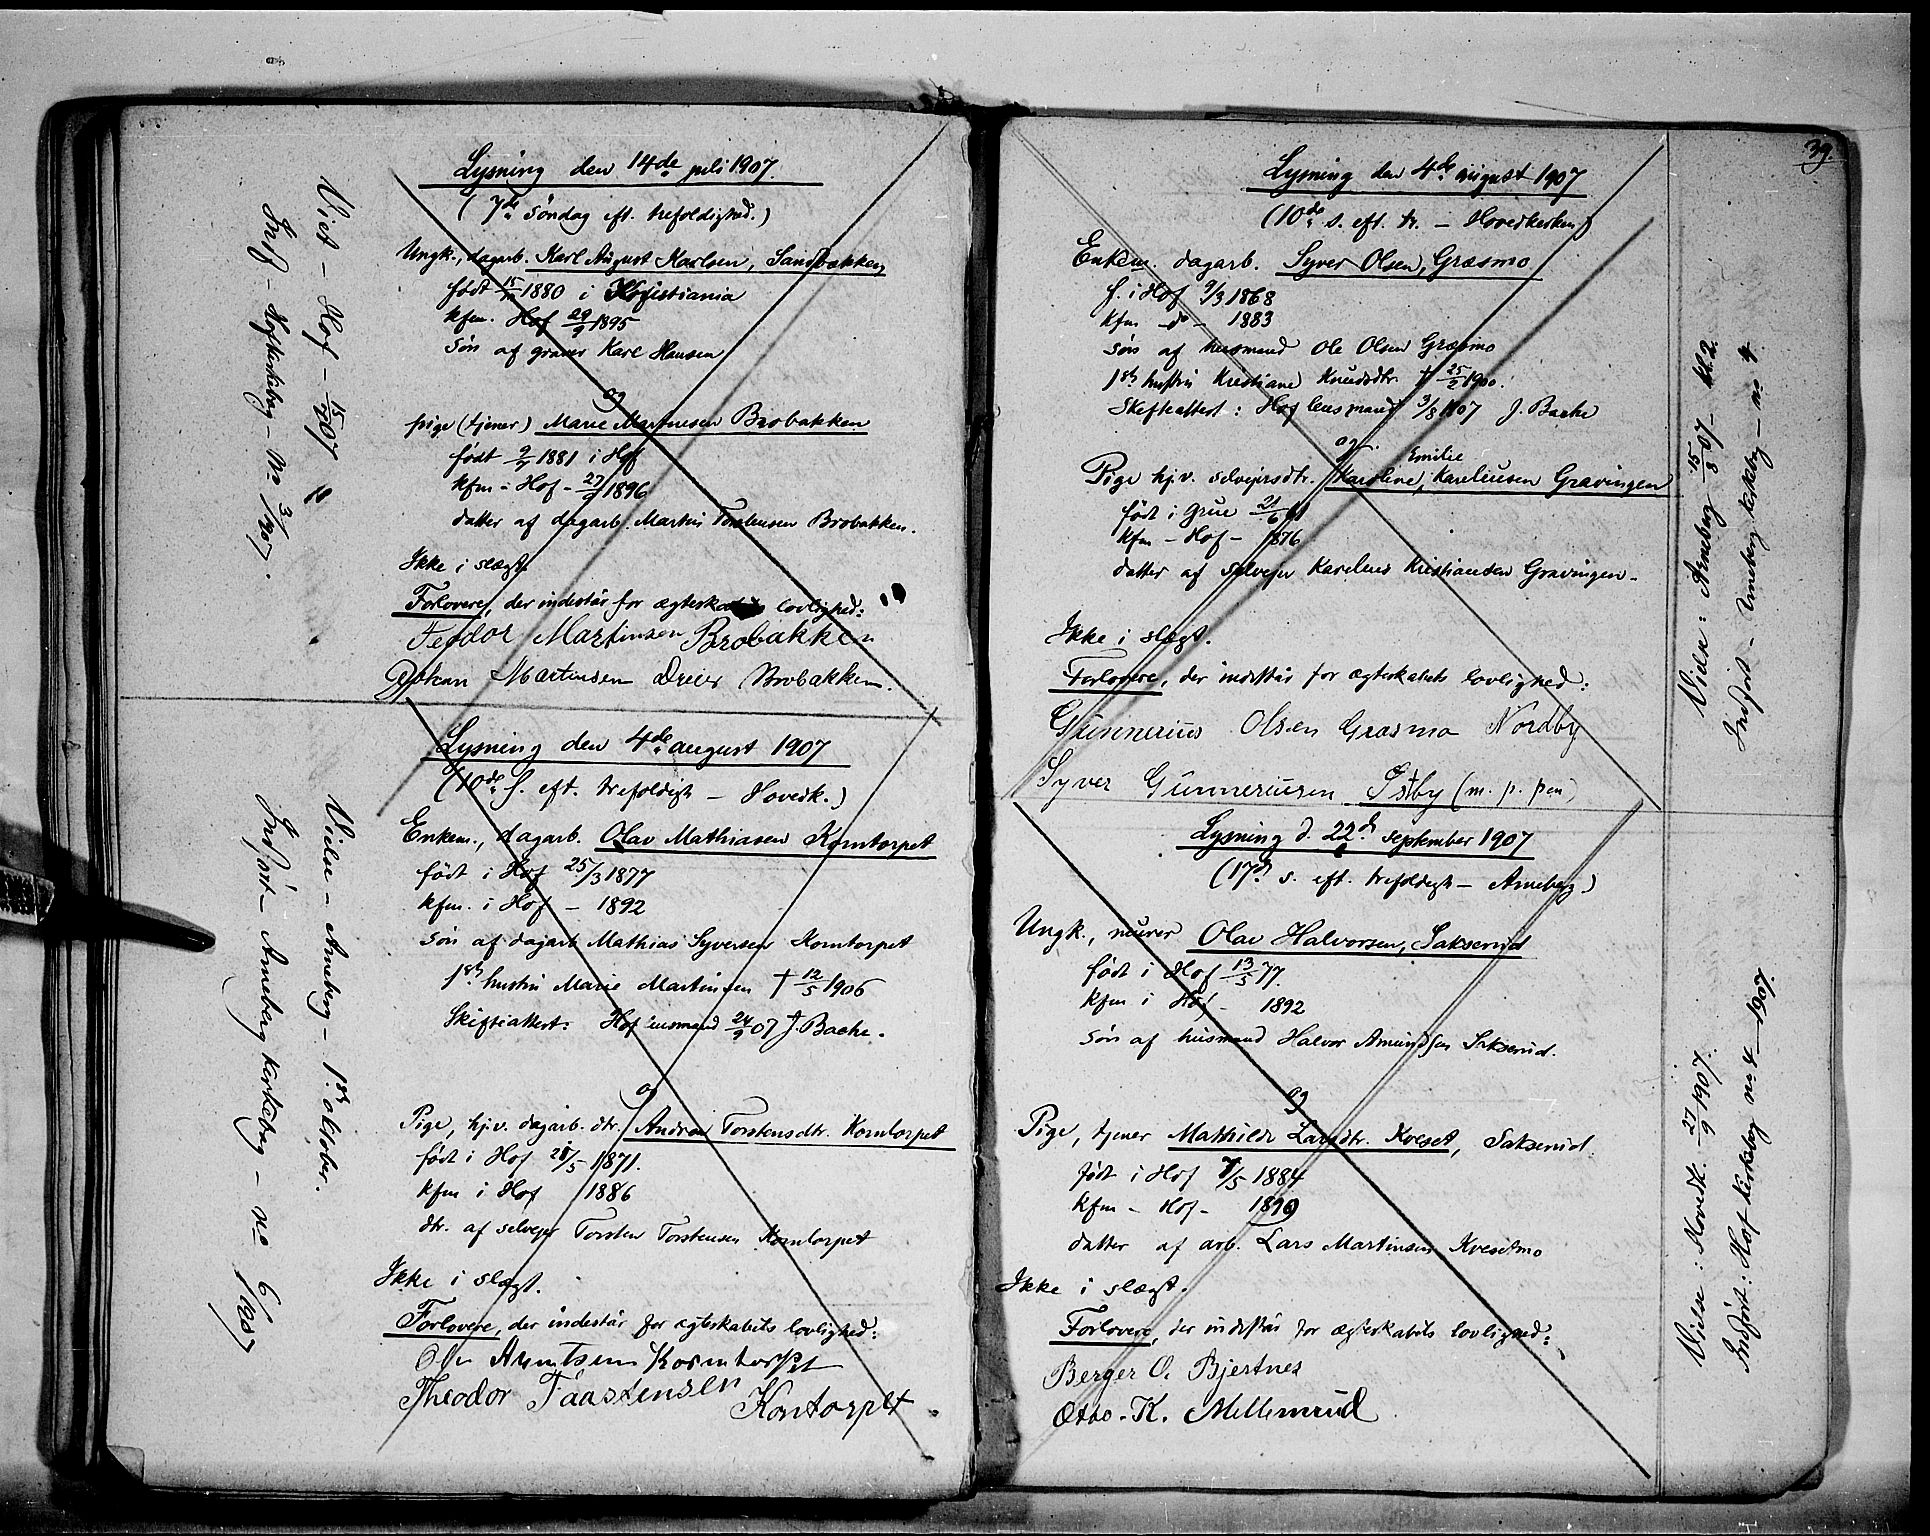 Lysning den 14de juli 1907.
(7de söndag eft. trefoldighed.)
Ungk., dagarb. Karl August Karlsen, Sandbakken
født 15/ 1880 i Kristiania
kfm. Hof 29/9 1895
sön af graver Karl Hansen
og
pige (tjener) Marie Martinsen Brobakken
født 9/ 1881 i Hof
kfm - Hof - 27/9 1896
datter af dagarb. Martin Torstensen Brobakken.
Ikke i slægt
Forlovere, der indestår for ægteskabets lovlighed:
Teodor Martinsen Brobakken
Johan Martinsen Dreier Brobakken.
Viet - Hof - 15/ 07
Inf - Hofkirkebog - No 3/1907.
Lysning den 4de august 1907
(10de s. eft. trefoldigh - Hovedk.)
Enkem., dagarb. Olav Mathiasen Korntorpet
født i Hof 25/3 1877
kfm. i Hof - 1892
sön af dagarb Mathias Syversen Korntorpet
1ste hustru Marie Martinsen † 12/5 1906
Skifteattest: Hof lensmand 24/9 07 J. Bache.
og
Pige, hj.v. dagarb. dtr. Andrea Torstensdtr. Korntorpet
født i Hof 28/5 1871.
kfm i Hof 1886
dtr. af selvejer Torsten Torstensen Korntorpet
Ikke i slægt.
Forlovere, der indestår for ægteskabets lovlighed:
Ole Arntsen Korntorpet
Theodor Taastensen
Kontorpet
Vielse - Arneberg - 1ste oktober.
Indført - Arneberg kirkebog - no 6/1907
39.
Lysning den 4de august 1907
(10de s. eft. tr. - Hovedkirken)
Enkem. dagarb. Syver Olsen, Græsmo
f. i Hof 9/3 1868
kfm -do- 1883
sön af husmand Ole Olsen Græsmo
1ste hustru Kristiane Knudsdtr. † 25/2 1900.
Skifteattest: Hof lensmand 3/8 1907 J. Bache
og
Emilie
Pige hj.v. selvejersdtr. Karoline, Kareliusen Gravingen
født i Grue 21/6 61
kfm - Hof - 1876
datter af selvejer Karelius Kristiansen Gravingen -
Ikke i slægt.
Forlovere, der indestår for ægteskabets lovlighed:
Gunnerius Olsen Grasmo Nordby
Syver Gunneriusen Östby (m. p. pen)
Vielse: Arneberg 15/8 07 - kl. 2.
Indført - Arneberg kirkebog - no 4.
Lysning d. 22de september 1907
(17de s. eft. trefoldigh - Arneberg)
Ungk., murer Olav Halvorsen, Sakserud
født i Hof 13/5 77.
kfm i Hof - 1892
sön af husmand Halvor Amundsen Sakserud.
og
Pige, tjener Mathilde Larsdtr. Kveset, Sakserud.
født i Hof 7/5 1884
kfm - Hof - 1899
datter af arb. Lars Martinsen Kvesetmo
Ikke i slægt.
Forlovere, der indestår for ægteskabets lovlighed:
Berger O. Bjertnes
Otto. K. Mellemrud
Vielse: Hovedk. 27/9 1907.
Indført: Hof kirkebog no 4 1907.